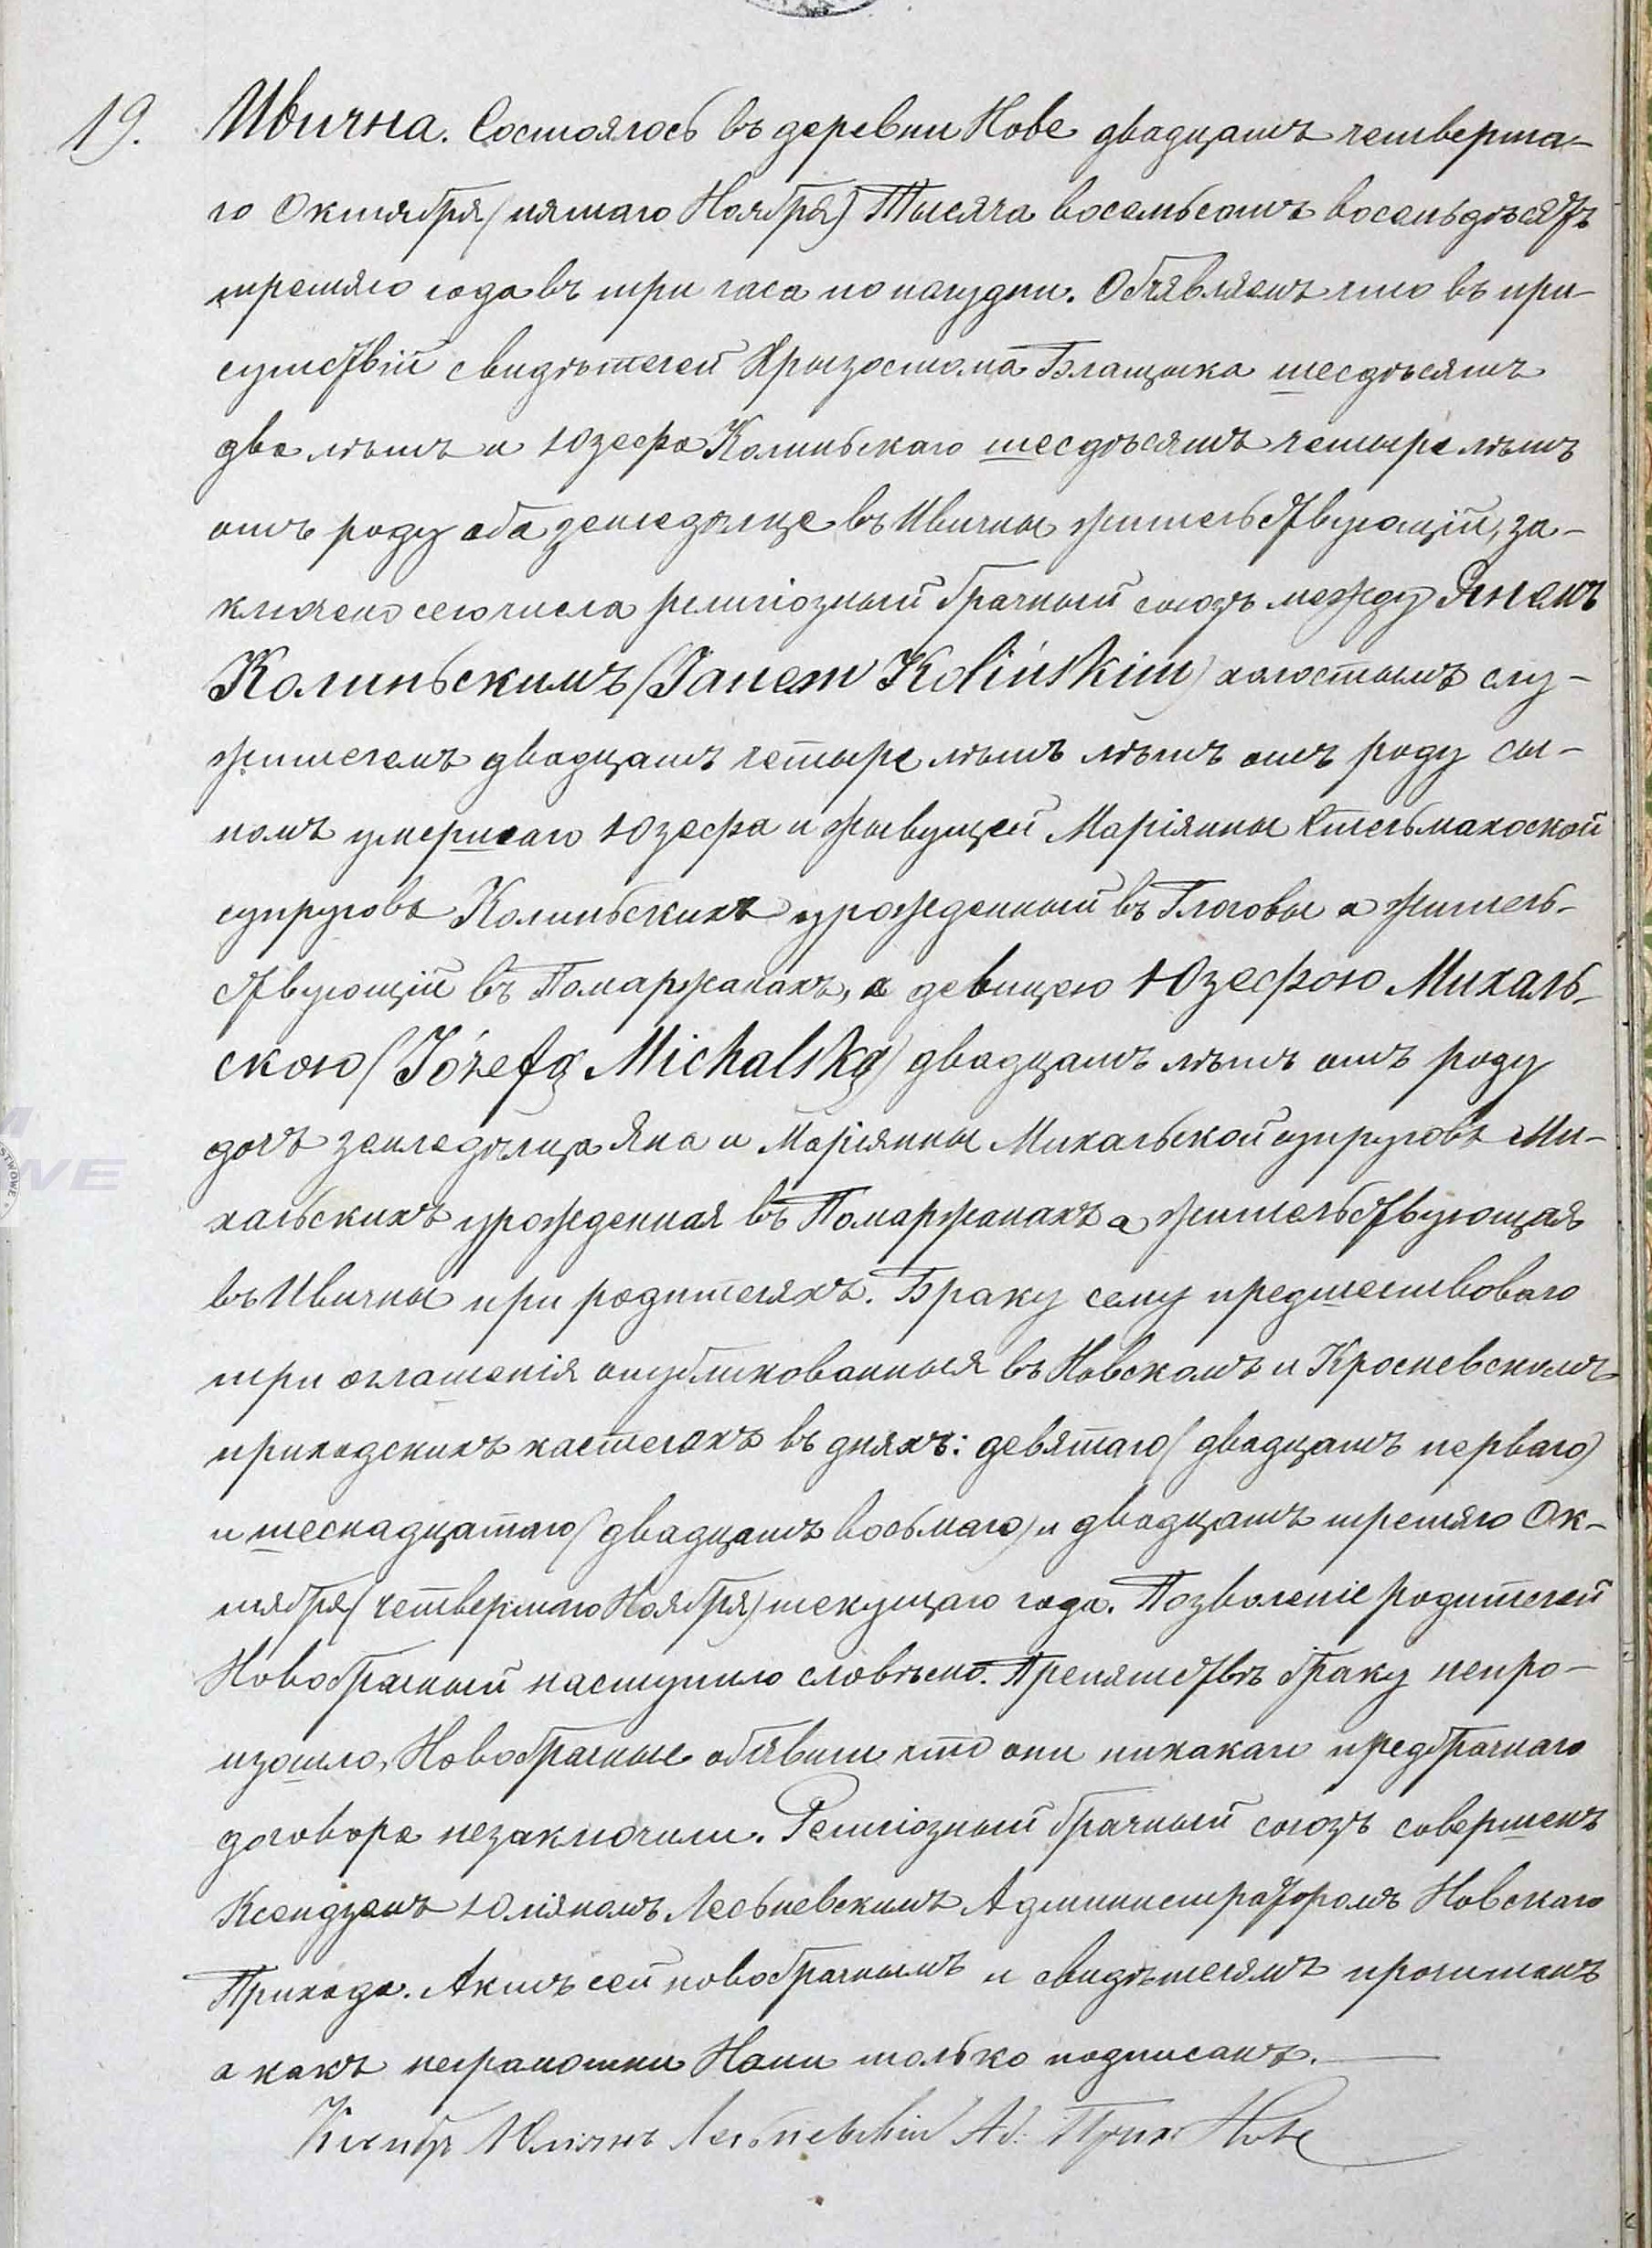 19. Ивична. Состоялось въ деревни Нове двадцать четверта-
го Октября (пятаго Ноября) Тысяча восемьсотъ восемьдѣсятъ
третяго года въ три часа по полудни. Объявляемъ что въ при-
сутствій свидѣтелей Хрызостома Блащыка шесдѣсятъ
два лѣтъ и Юзефа Колиньскаго шесдѣсятъ четыре лѣтъ
отъ роду оба земледѣлце въ Ивичны жительствующій, за-
ключено сего числа религіозный брачный союзъ между Яномъ
Колиньскимъ (Janem Kolińskim) холостымъ слу-
жителемъ двадцать четыре лѣтъ лѣтъ отъ роду сы-
номъ умершаго Юзефа и жывущей Маріянны Стельмахоской
супруговъ Колиньскихъ урожденный въ Глоговы а житель-
ствующій въ Помаржанахъ, а девицею Юзефою Михаль-
скою (Józefą Michalską) двадцать лѣтъ отъ роду
дочъ земледѣлца Яна и Маріянны Михальской супруговъ Ми-
хальскихъ урожденная въ Помаржанахъ а жительствующая
въ Ивичны при родителяхъ. Браку сему предшествовало
три оглашенія опубликованныя въ Новскомъ и Кросневскимъ
приходскихъ костелахъ въ дняхъ: девятаго (двадцать перваго)
и шеснадцатаго (двадцать восьмаго) и двадцать третяго Ок-
тября (четвертаго Ноября) текущаго года. Позволеніе родителей
Новобрачный наступило словѣсно. Препятствъ браку непро-
изошло, Новобрачные объявили что они никакаго предбрачнаго
договора незаключили. Религіозный брачный союзъ совершенъ
Ксендземъ Юліяномъ Лесьневскимъ Администраторомъ Новскаго
Прихода. Актъ сей новобрачнымъ и свидѣтелямъ прочитанъ
а какъ неграмотни Нами только подписанъ.
Ксендзъ Юліянъ Лесьневскій Ад: Прих Нове